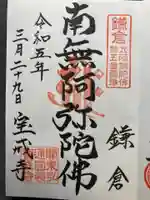 鎌倉
南無阿弥陀佛
令和五年
三月二十九日
宝戒寺